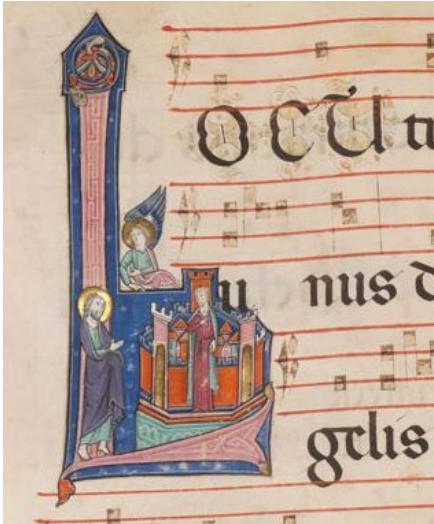 LOCU tu
u nus d
gelis